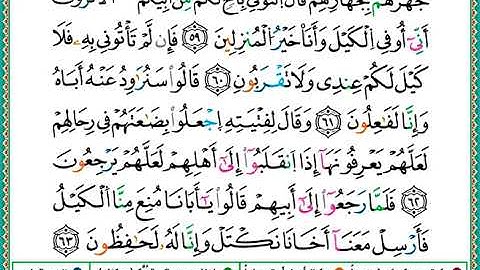 جَهَّزَهُم بِجَهَازِهِمْ قَالَ ٱئْتُونِى بِأَخٍ لَّكُم مِّنْ أَبِيكُمْ ۚ أَلَا تَرَوْنَ
أَنِّىٓ أُوفِى ٱلْكَيْلَ وَأَنَا۠ خَيْرُ ٱلْمُنزِلِينَ ٥٩ فَإِن لَّمْ تَأْتُونِى بِهِۦ فَلَا
كَيْلَ لَكُمْ عِندِى وَلَا تَقْرَبُونِ ٦٠ قَالُوا۟ سَنُرَٰوِدُ عَنْهُ أَبَاهُ
وَإِنَّا لَفَـٰعِلُونَ ٦١ وَقَالَ لِفِتْيَـٰنِهِ ٱجْعَلُوا۟ بِضَـٰعَتَهُمْ فِى رِحَالِهِمْ
لَعَلَّهُمْ يَعْرِفُونَهَآ إِذَا ٱنقَلَبُوٓا۟ إِلَىٰٓ أَهْلِهِمْ لَعَلَّهُمْ يَرْجِعُونَ
٦٢ فَلَمَّا رَجَعُوٓا۟ إِلَىٰٓ أَبِيهِمْ قَالُوا۟ يَـٰٓأَبَانَا مُنِعَ مِنَّا ٱلْكَيْلُ
فَأَرْسِلْ مَعَنَآ أَخَانَا نَكْتَلْ وَإِنَّا لَهُۥ لَحَـٰفِظُونَ ٦٣